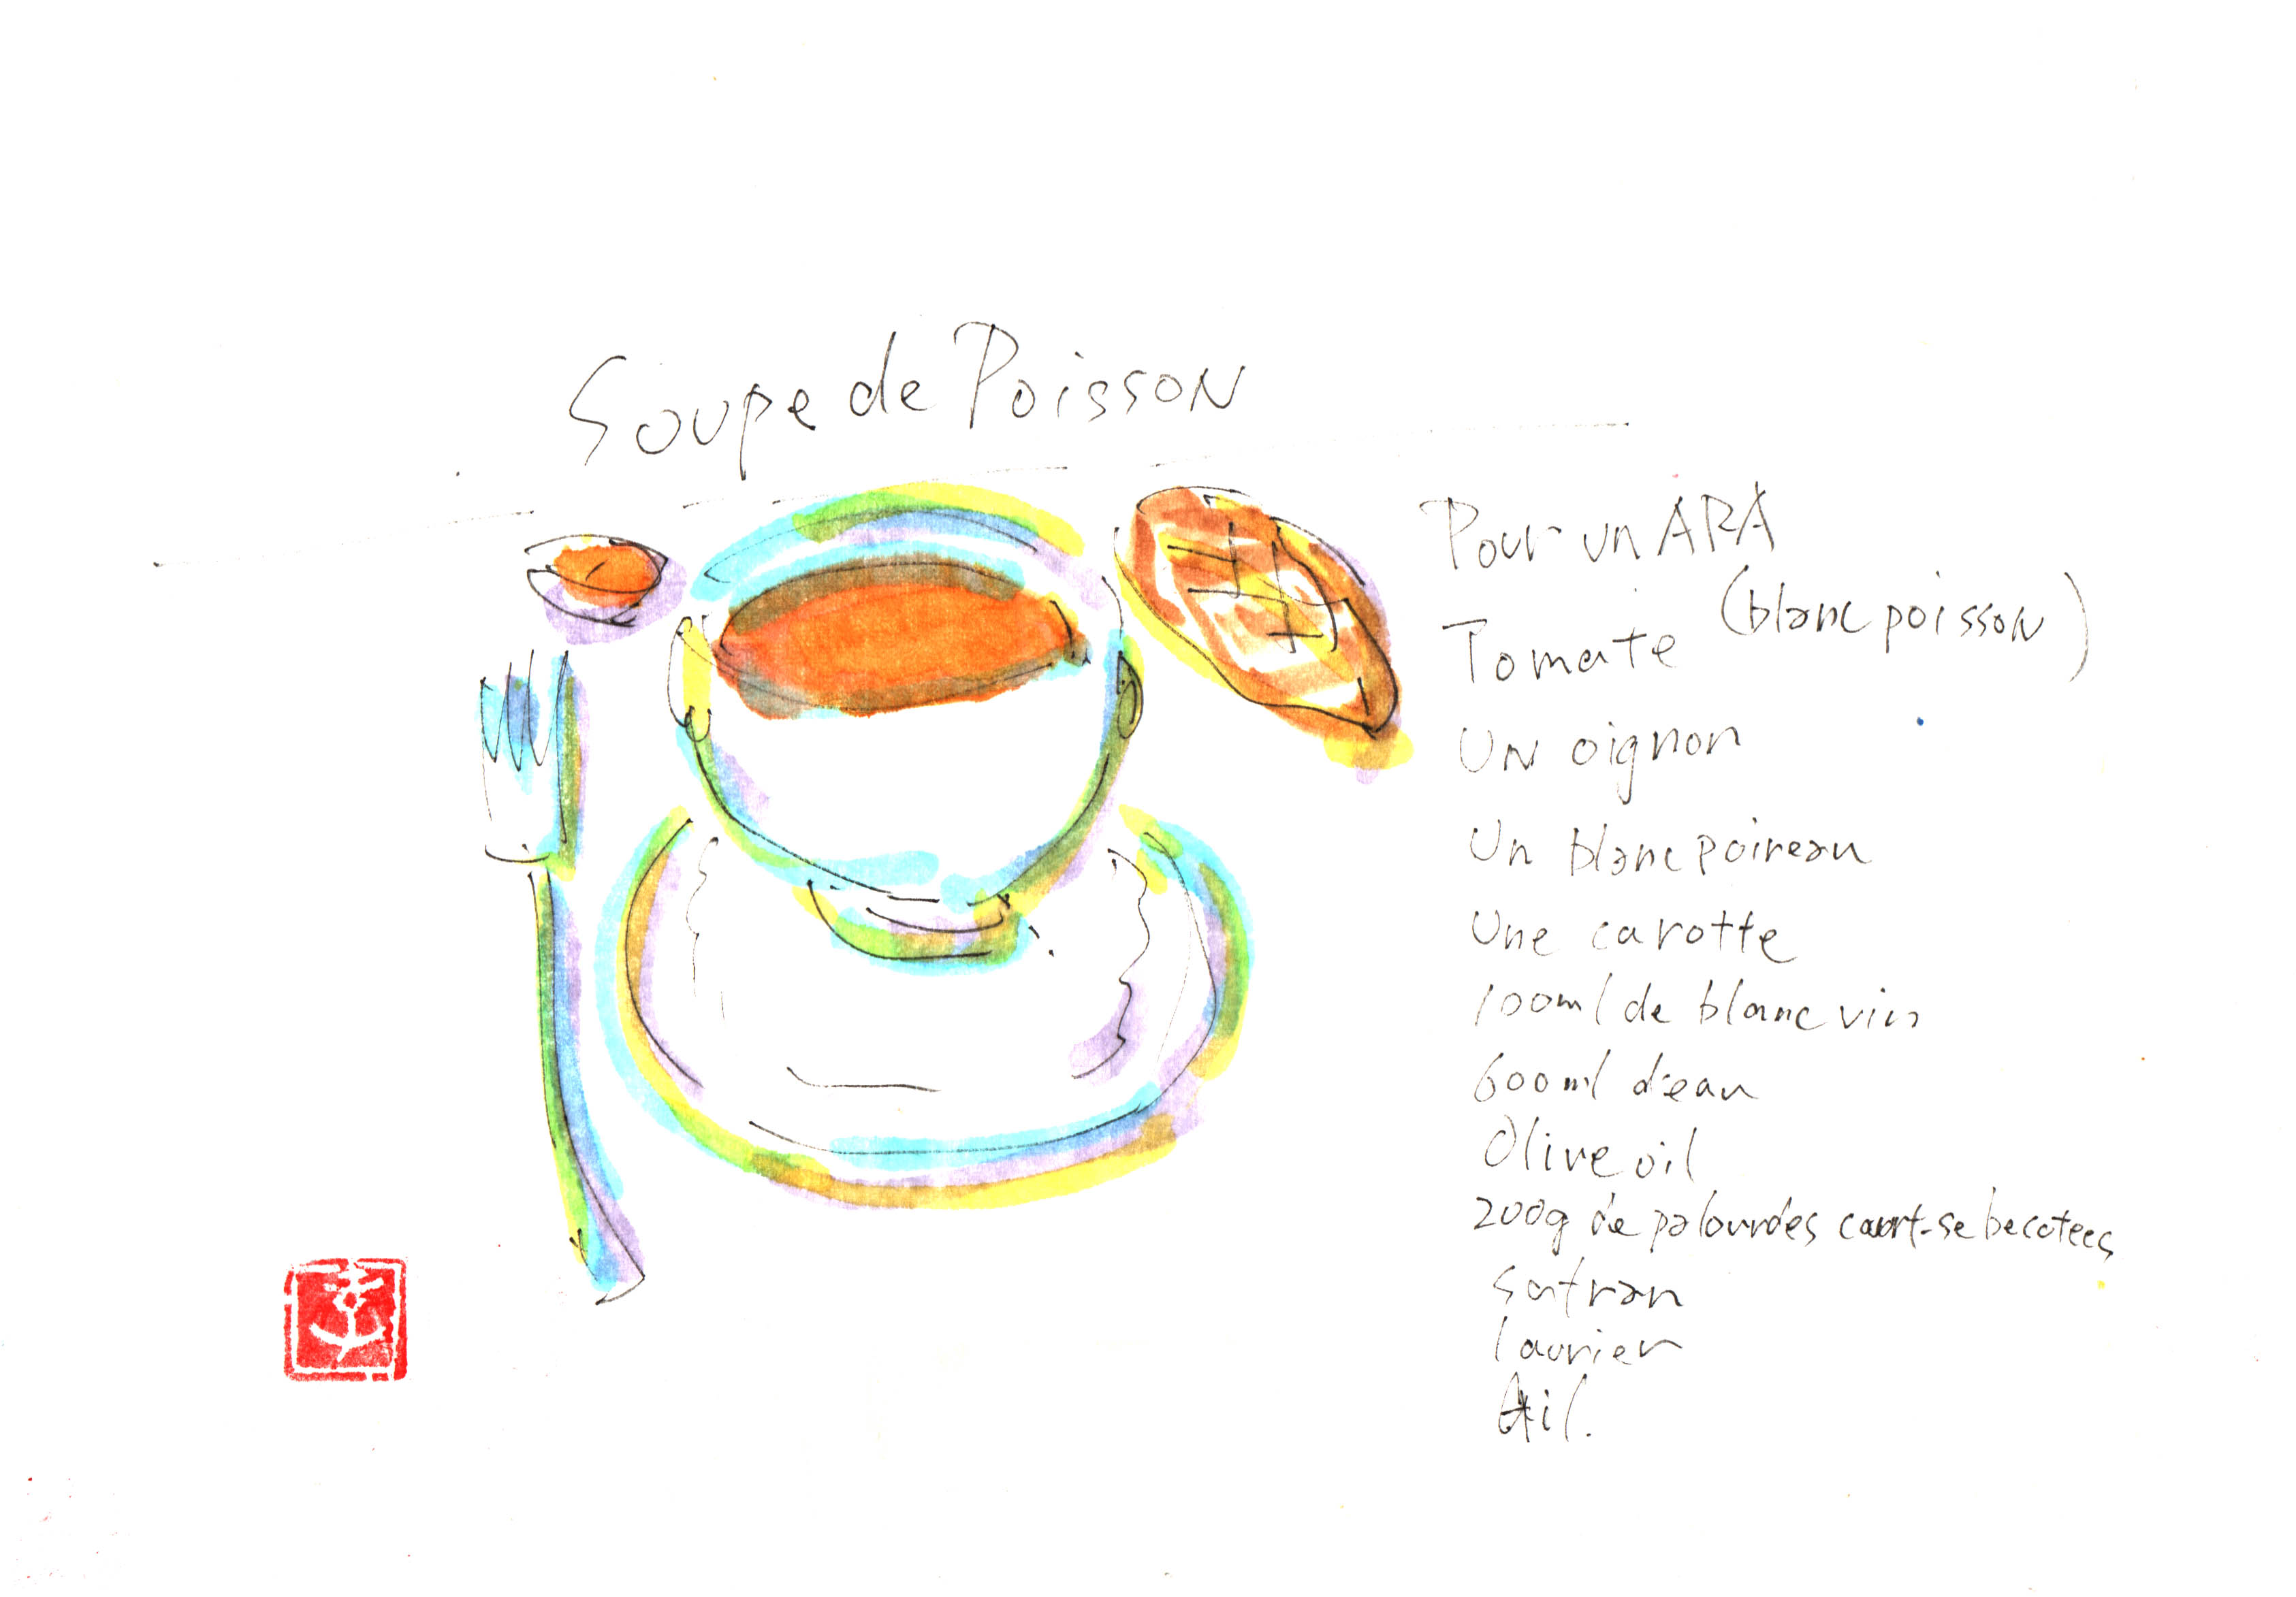 Soupe de Poisson
Pour un ARA
(blanc poisson)
Tomate
Un oignon
Un blanc poireau
Une carotte
100ml de blanc vin
600ml d'eau
Olive oil
200g de palourdes
Safran
laurier
Ail.